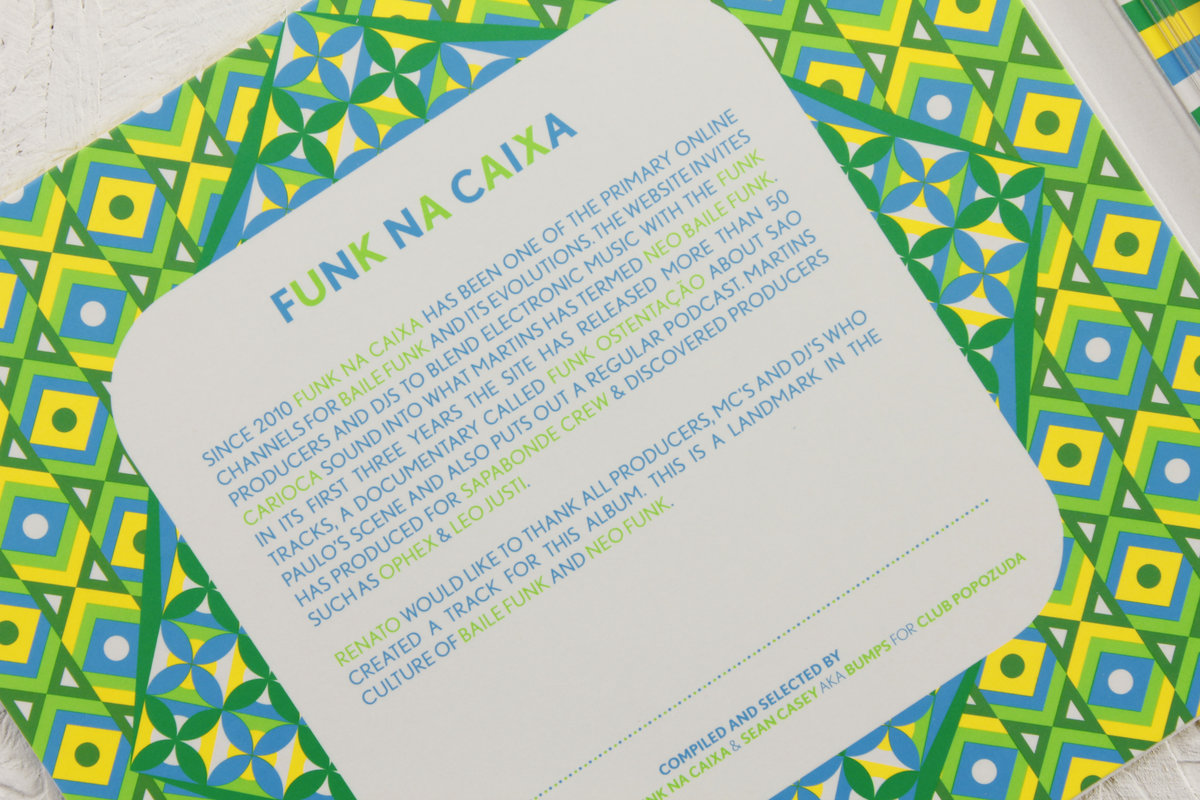 FUNK NA CAIXA
SINCE 2010 FUNK NA CAIXA HAS BEEN ONE OF THE PRIMARY ONLINE
CHANNELS FOR BAILE FUNK AND ITS EVOLUTIONS. THE WEBSITE INVITES
PRODUCERS AND DJS TO BLEND ELECTRONIC MUSIC WITH THE FUNK
CARIOCA SOUND INTO WHAT MARTINS HAS TERMED NEO BAILE FUNK.
IN ITS FIRST THREE YEARS THE SITE HAS RELEASED MORE THAN 50
TRACKS, A DOCUMENTARY CALLED FUNK OSTENTAÇÃO ABOUT SAO
PAULO'S SCENE AND ALSO PUTS OUT A REGULAR PODCAST. MARTINS
HAS PRODUCED FOR SAPABONDE CREW & DISCOVERED PRODUCERS
SUCH AS OPHEX & LEO JUSTI.
RENATO WOULD LIKE TO THANK ALL PRODUCERS, MC'S AND DJ'S WHO
CREATED A TRACK FOR THIS ALBUM. THIS IS A LANDMARK IN THE
CULTURE OF BAILE FUNK AND NEO FUNK.
COMPILED AND SELECTED BY
NA CAIXA & SEAN CASEY AKA BUMPS FOR CLUB POPOZUDA